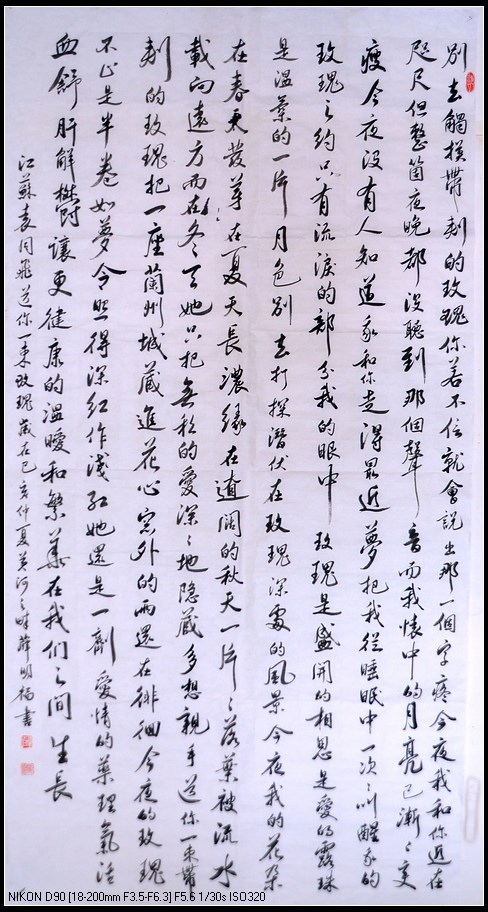 别去觸摸帶刺的玫瑰你若不信就會説出那一個字疼今夜我和你近在
咫尺但整箇夜晚都没聽到那個聲音而我懷中的月亮已漸漸変
瘦今夜没有人知道我和你走得最近夢把我從睡眠中一次次叫醒我的
玫瑰之約只有流淚的部分我的眼中玫瑰是盛開的相思是愛的露珠
是温葉的一片月色别去打探潜伏在玫瑰深處的風景今夜我的花朵
在春天發芽在夏天長濃緑在遼闊的秋天一片片落葉被流水
載向遠方而在冬天她只把無私的愛深深地隐藏多想親手送你一束帶
刺的玫瑰把一座蘭州城藏進花心窓外的雨還在徘徊今夜的玫瑰
不止是半卷如夢令照得深紅作淺紅她還是一劑愛情的藥理氣活
血舒肝解鬱讓更健康的温曖和繁華在我们之间生長
江蘇袁同飛送你一束玫瑰歲在己亥仲夏黄河之畔薛明福書
NIKON D90 [18-200mm F3.5-F6.3] F5.6 1/30s ISO320